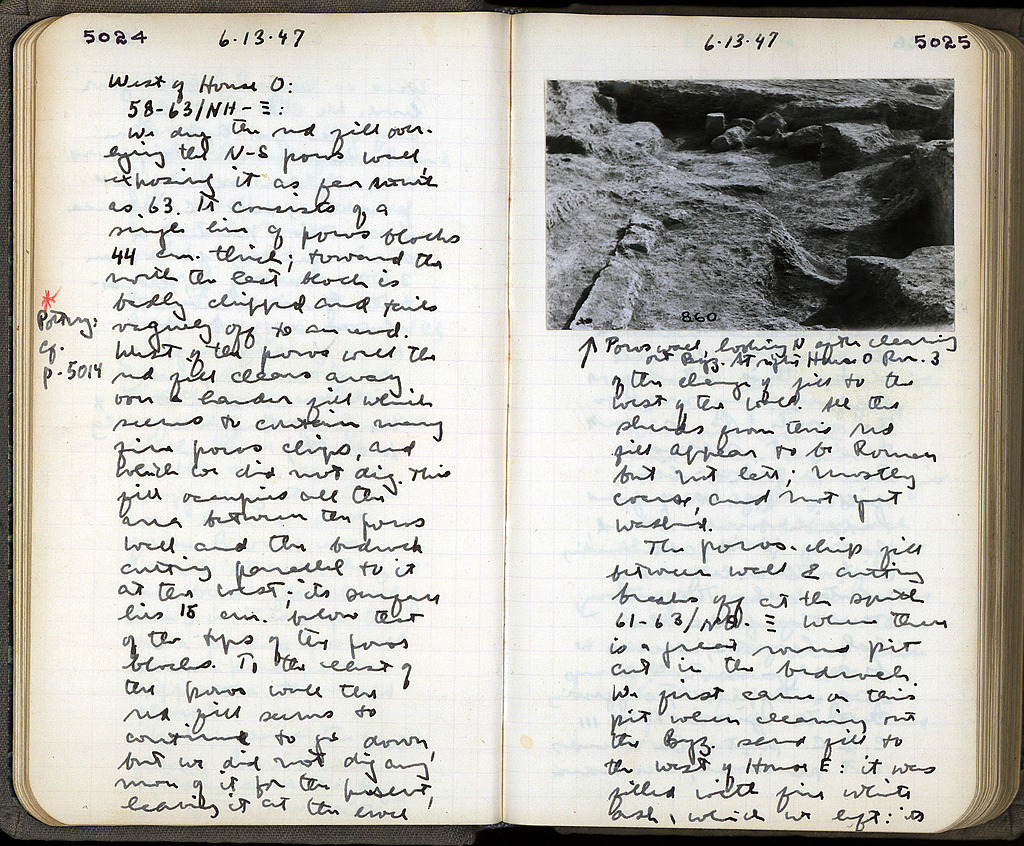 5024
6·13·47
West of House O:
58-63/NH-Ξ:
We dig the red fill over-
lying the N-S poros wall
exposing it as far south
as 63. It consists of a
single line of poros blocks
44 cm. thick; toward the
north the last block is
badly chipped and tails
vaguely off to an end.
West of the poros wall the
red fill clears away
over a harder fill which
seems to contain many
fine poros chips, and
which we did not dig. This
fill occupies all the
area between the poros
wall and the bedrock
cutting parallel to it
at the west; its surface
lies 15 cm. below that
of the tops of the poros
blocks. To the east of
the poros wall the
red fill seems to
continue to go down,
but we did not dig any
more of it for the present,
leaving it at the level
*
Pottery:
cf.
p-5014
6·13·47
5025
860
↑ Poros wall, looking N after clearing
out Byz. At right House O Rm. 3
of the change of fill to the
west of the wall. All the
sherds from this red
fill appear to be Roman
but not late; mostly
coarse, and not yet
washed.
The poros-chip fill
between wall & cutting
breaks off at the south
61-63/ Ξ where there
is a great round pit
cut in the bedrock.
We first came on this
pit when cleaning out
the Byz. sand fill to
the west of House E: it was
filled with fine white
ash, which we left: its